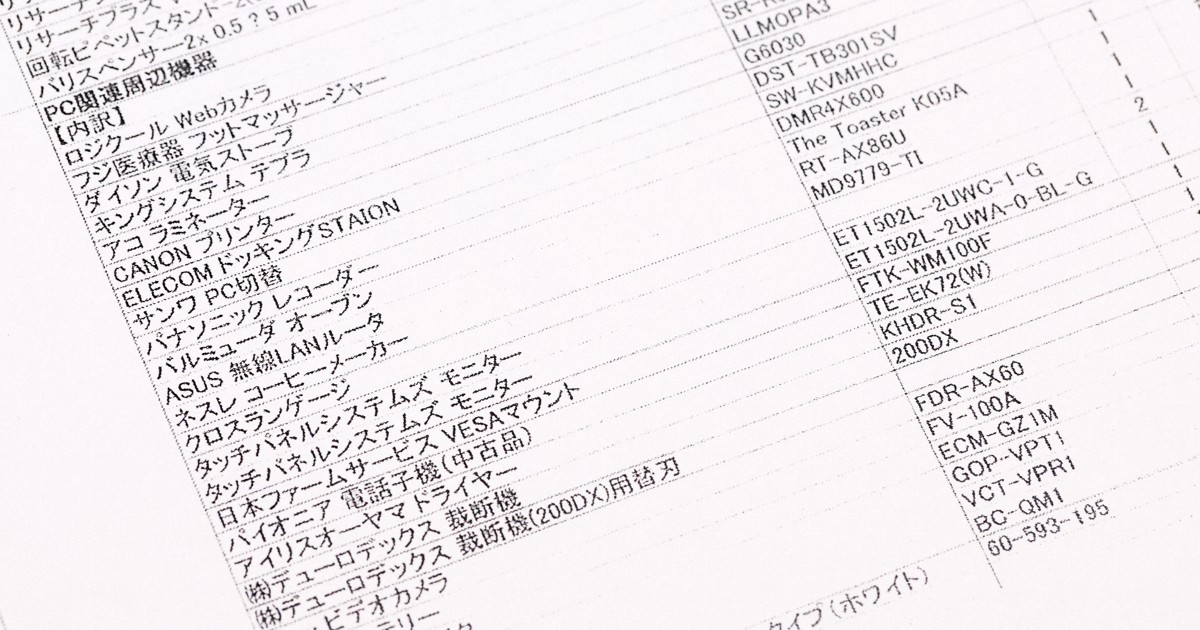 リサーチプラス
回転ピペットスタンド
バリスペンサー2x 0.5？5 mL
PC関連周辺機器
【内訳】
ロジクール Webカメラ
フジ医療器 フットマッサージャー
ダイソン 電気ストーブ
キングシステム テプラ
アコ ラミネーター
CANON プリンター
ELECOM ドッキングSTAION
サンワ PC切替
パナソニック レコーダー
バルミューダ オーブン
ASUS 無線LANルータ
ネスレ コーヒーメーカー
クロスランゲージ
タッチパネルシステムズ モニター
タッチパネルシステムズ モニター
日本ファームサービス VESAマウント
パイオニア 電話子機(中古品)
アイリスオーヤマ ドライヤー
㈱デューロデックス 裁断機
㈱デューロデックス 裁断機(200DX)用替刃
ビデオカメラ
タイプ(ホワイト)
LLMOPA3
G6030
DST-TB301SV
SW-KVMHHC
DMR4X600
The Toaster K05A
RT-AX86U
MD9779-TI
ET1502L-2UWC-1-G
ET1502L-2UWA-0-BL-G
FTK-WM100F
TE-EK72(W)
KHDR-S1
200DX
FDR-AX60
FV-100A
ECM-GZ1M
GOP-VPT1
VCT-VPR1
BC-QM1
60-593-195
1
1
1
1
2
1
1
1
1